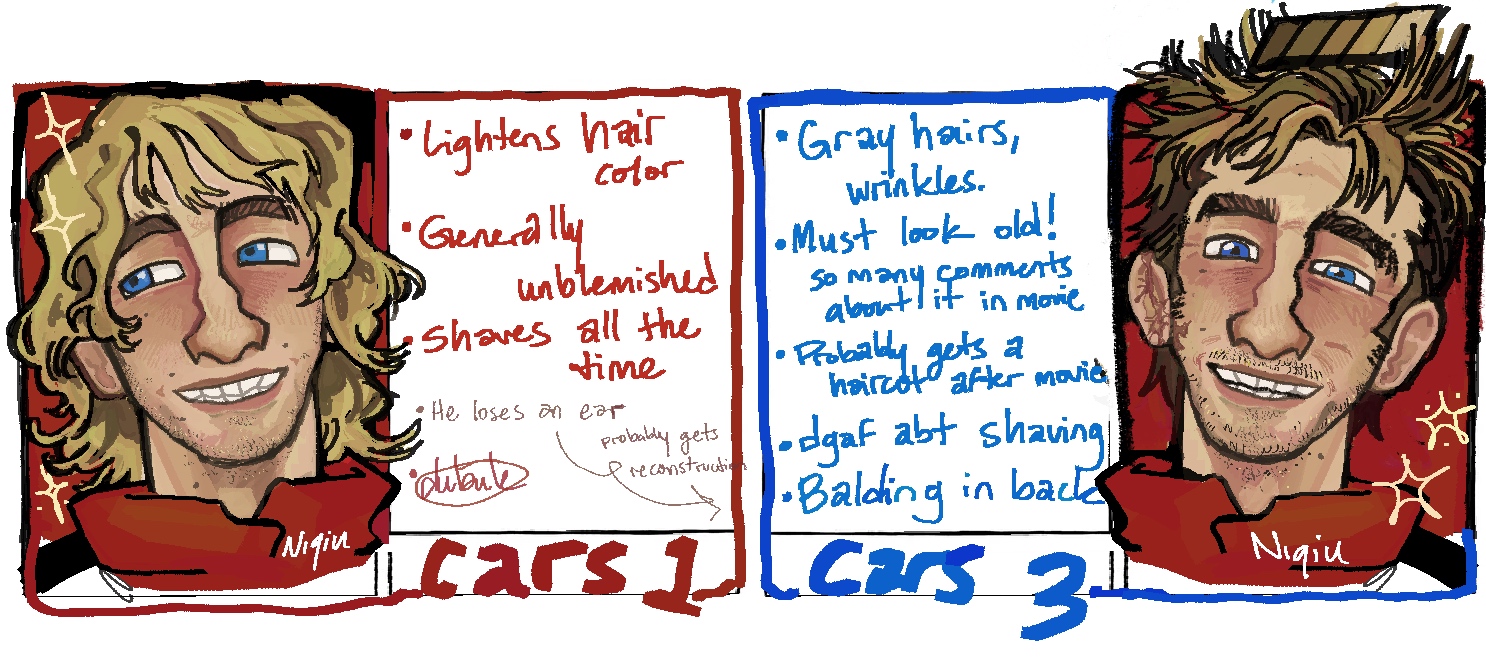 • Lightens hair
color
• Generally
unblemished
• Shaves all the
time
• He loses an ear
probably gets
reconstruction
•
Niqiu
cars 1
• Gray hairs,
wrinkles.
• Must look old!
so many comments
about it in movie
• Probably gets a
haircut after movie
• dgaf abt shaving
• Balding in back
cars 3
Niqiu